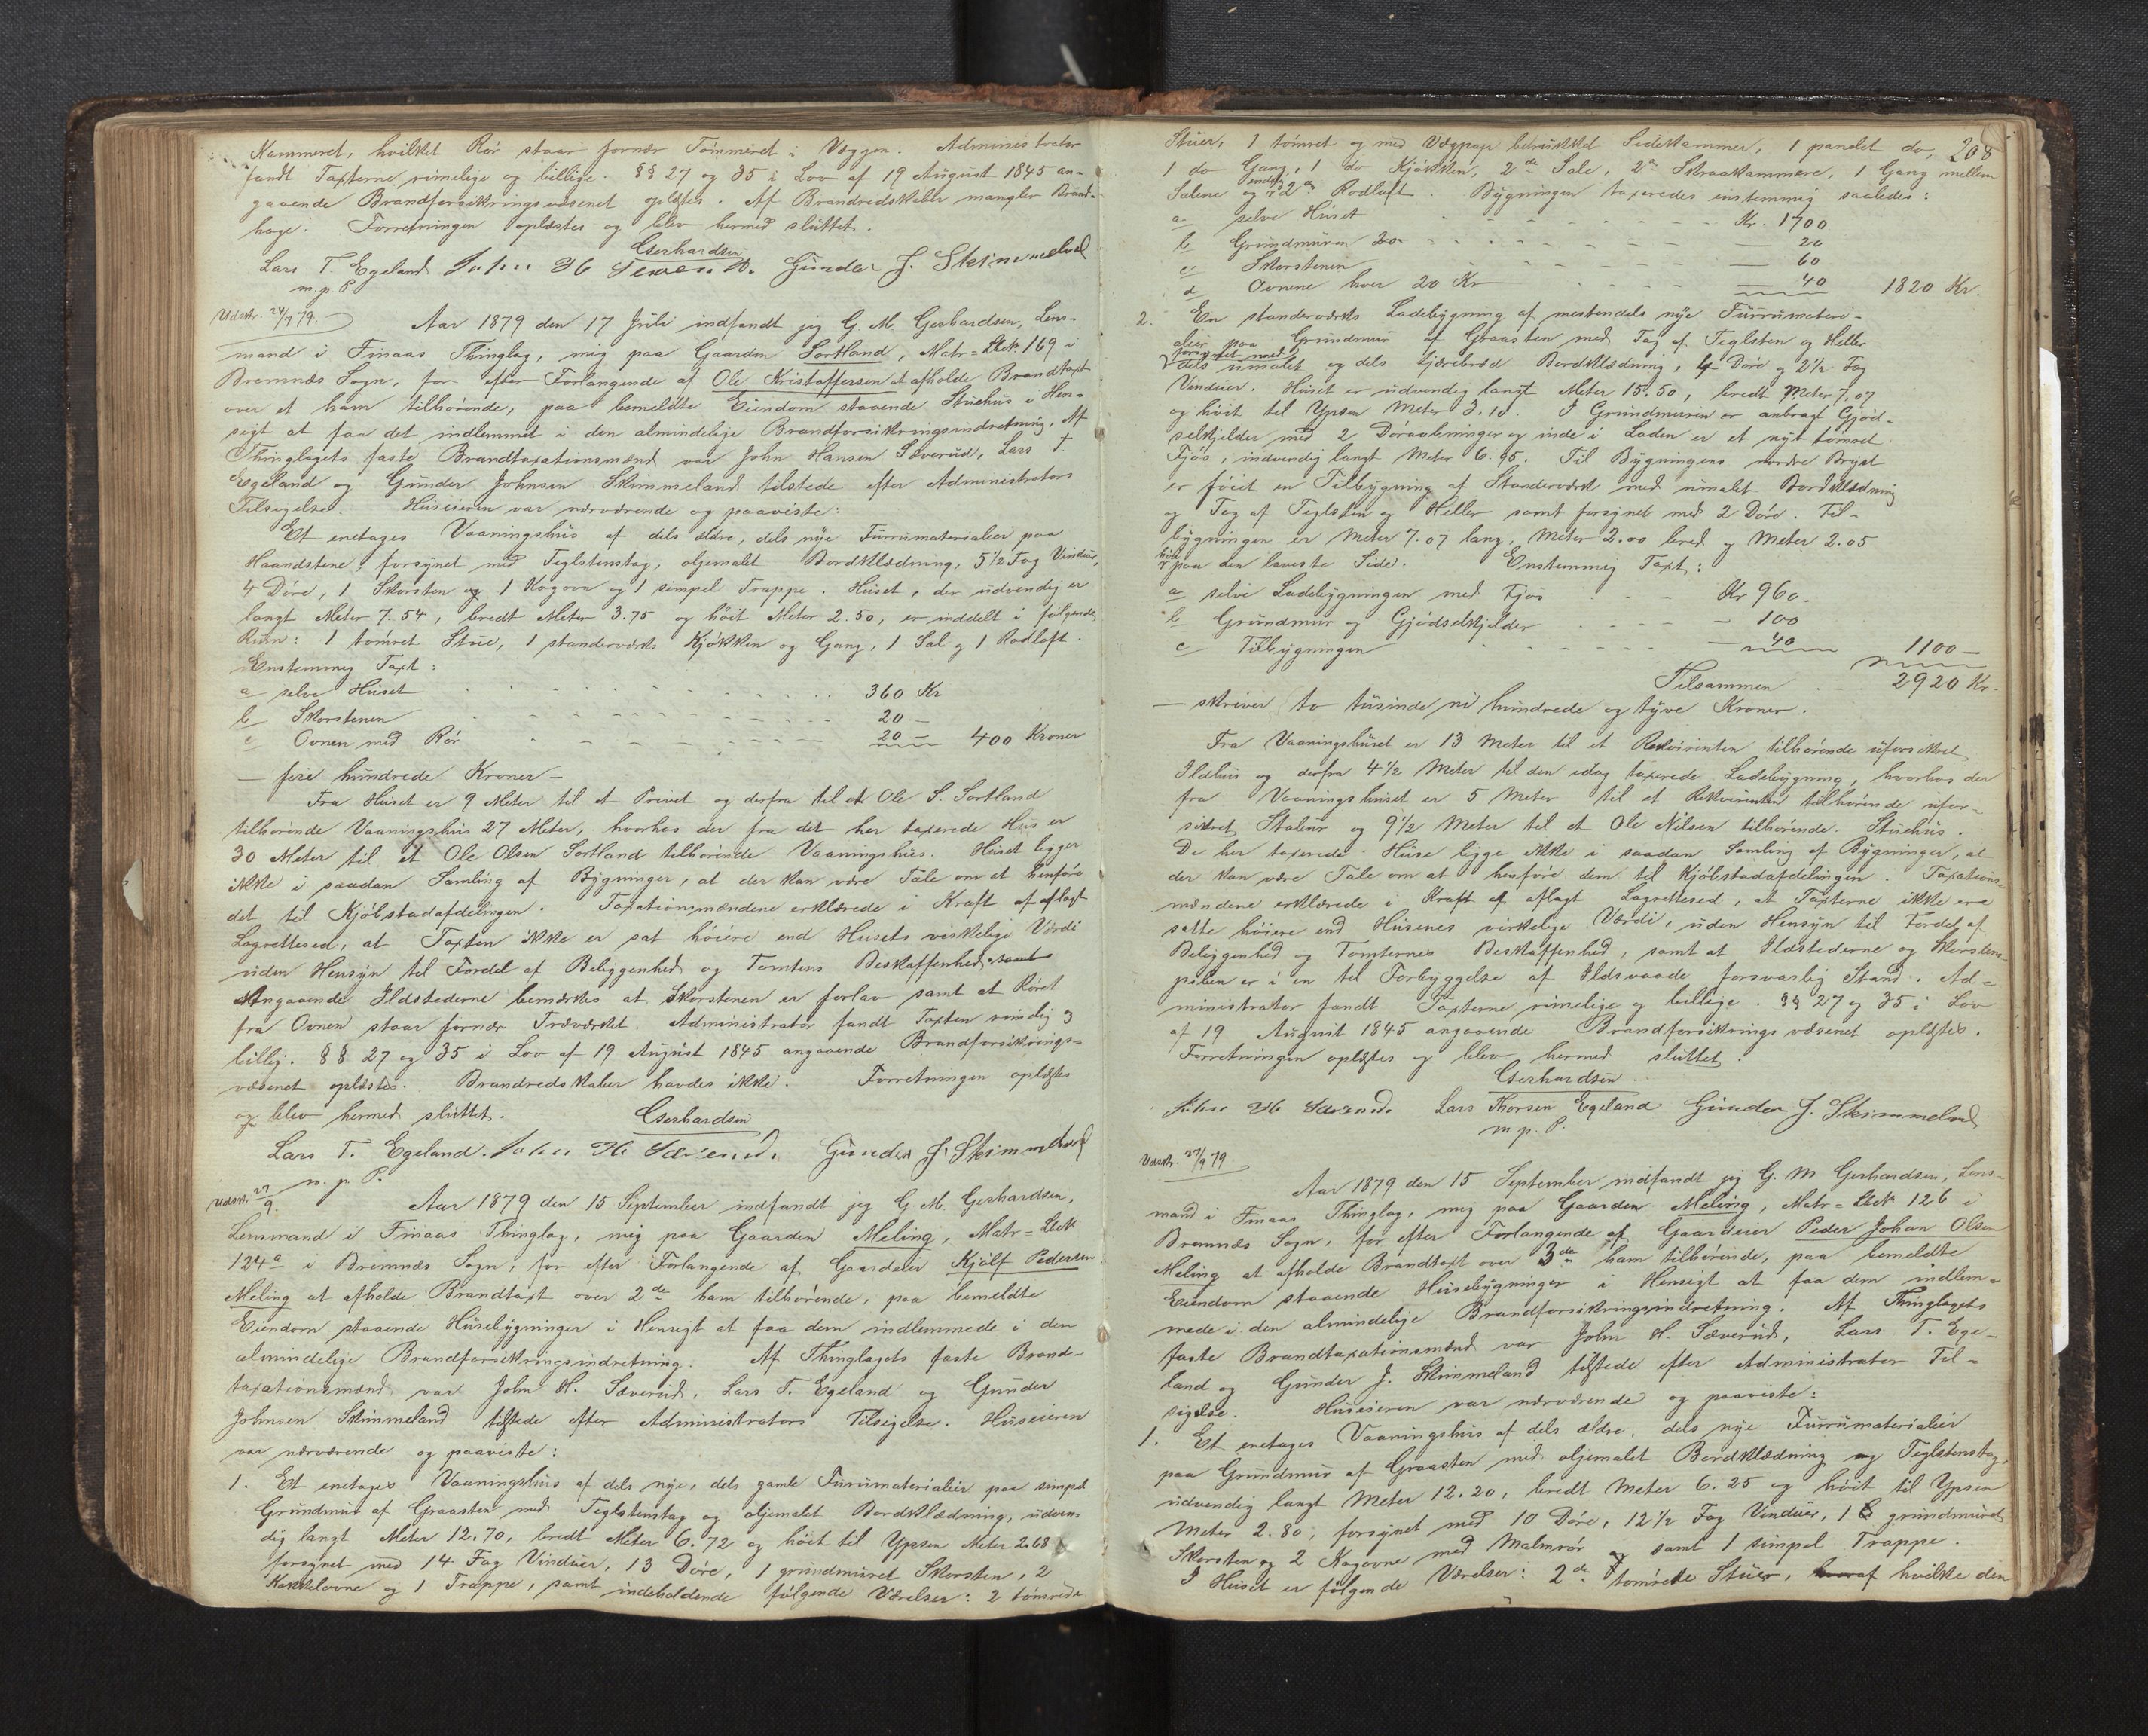 Kammeret, hvilket Rör staar fornær Tömmeret i Væggen. Administrator
fandt Taxterne rimelige og billige. §§ 27 og 35 i Lov af 19 August 1845 an-
gaaende Brandforsikringsvæsenet oplæstes. Af Brandredskaber mangler Brand-
hage. Forretningen oplæstes og blev hermed sluttet.
Gerhardsen
Lars T. Egeland John H Sæverud. Gunder J. Skimmeland
m. p. P.
Udskr. 24/7 79.
Aar 1879 den 17 Juli indfandt jeg G. M. Gerhardsen, Lens-
mand i Finaas Thinglag, mig paa Gaarden Sortland, Matr=Løb. 169 i
Bremnæs Sogn, for efter Forlangende af Ole Kristoffersen at afholde Brandtaxt
over et ham tilhörende, paa bemeldte Eiendom staaende Stuehus i Hen-
sigt at faa det indlemmet i den almindelige Brandforsikringsindretning. Af
Thinglagets faste Brandtaxationsmænd var John Hansen Sæverud, Lars T.
Egeland og Gunder Johnsen Skimmeland tilstede efter Administrators
Tilsigelse. Huseieren var nærværende og paaviste:
Et enetages Vaaningshus af dels ældre, dels nye Furumaterialier paa
Haandstene, forsynet med Teglstenstag, oljemalet Bordklædning, 5 1/2 Fag Vinduer,
4 Döre, 1 Skorsten og 1 Kogovn og 1 simpel Trappe. Huset, der udvendig er
langt Meter 7.54, bredt Meter 3.75 og höit Meter 2.50, er inddelt i fölgende
Rum: 1 tömret Stue, 1 standerværks Kjökken og Gang, 1 Sal og 1 Rodloft.
Enstemmig Taxt:
a selve Huset 360 Kr
b Skorstenen 20 —
c Ovnen med Rör 20 — 400 Kroner
— fire hundrede Kroner —
Fra Huset er 9 Meter til et Privet og derfra til et Ole S. Sortland
tilhörende Vaaningshus 27 Meter, hvorhos der fra det her taxerede Hus er
30 Meter til et Ole Olsen Sortland tilhörende Vaaningshus. Huset ligger
ikke i saadan Samling af Bygninger, at der kan være Tale om at henföre
det til Kjöbstadafdelingen. Taxationsmændene erklærede i Kraft af aflagt
Lagrettesed, at Taxten ikke er sat höiere end Husets virkelige Værdi
uden Hensyn til Fordel af Beliggenhed og Tomtens Beskaffenhed samt
Angaaende Ildstederne bemærkes at Skorstenen er forlav samt at Röret
fra Ovnen staar fornær Træværket. Administrator fandt Taxten rimelig og
billig. §§ 27 og 35 i Lov af 19 August 1845 angaaende Brandforsikrings-
væsenet oplæstes. Brandredskaber havdes ikke. Forretningen oplæstes
og blev hermed sluttet.
Gerhardsen
Lars T. Egeland. John H Sæverud. Gunder J. Skimmeland
m. p. P.
Udskr. 27/9.
Aar 1879 den 15 September indfandt jeg G. M. Gerhardsen,
Lensmand i Finaas Thinglag, mig paa Gaarden Meling, Matr=Løb
124a i Bremnæs Sogn, for efter Forlangende af Gaardeier Kjølf Pedersen
Meling at afholde Brandtaxt over 2de ham tilhörende, paa bemeldte
Eiendom staaende Husebygninger i Hensigt at faa dem indlemmede i den
almindelige Brandforsikringsindretning. Af Thinglagets faste Brand-
taxationsmænd var John H. Sæverud, Lars T. Egeland og Gunder
Johnsen Skimmeland tilstede efter Administrators Tilsigelse. Huseieren
var nærværende og paaviste:
1. Et enetages Vaaningshus af dels nye, dels gamle Furumaterialier paa simpel
Grundmur af Graasten med Teglstenstag og oljemalet Bordklædning, udven-
dig langt Meter 12.70, bredt Meter 6.72 og höit til Ypsen Meter 2.68,
forsynet med 14 Fag Vinduer, 13 Döre, 1 grundmuret Skorsten, 2
Kakkelovne og 1 Trappe, samt indeholdende fölgende Værelser: 2 tömrede
208
Stuer, 1 tömret og med Vægpap betrukket Sidekammer, 1 panelet do,
1 do Gang, 1 do Kjökken, 2de Sale, 2de Skraakammere, 1 Gang mellem
Salene og endelig 2de Rodloft. Bygningen taxeredes enstemmig saaledes:
a selve Huset Kr. 1700
b Grundmuren 20
c Skorstenen — 60
d Ovnene hver 20 Kr — 40 1820 Kr.
2. En standerværks Ladebygning af mestendels nye Furumateri-
alier paa Grundmur af Graasten med Tag af Teglsten og Heller
forsynet med
dels umalet og dels tjærebredt Bordklædning, 4 Döre og 2 1/2 Fag
Vinduer. Huset er udvendig langt Meter 15.50, bredt Meter 7.07
og höit til Ypsen Meter 3.10. I Grundmuren er anbragt Gjød-
selkjelder med 2 Döraabninger og inde i Laden er et nyt tömret
Fjös, indvendig langt Meter 6.95. Til Bygningens nordre Bryst
er föiet en Tilbygning af Standerværk med umalet Bordklædning
og Tag af Teglsten og Heller samt forsynet med 2 Döre. Til-
bygningen er Meter 7.07 lang, Meter 2.00 bred og Meter 2.05
höi
paa den laveste Side. Enstemmig Taxt:
a selve Ladebygningen med Fjös Kr 960.
b Grundmur og Gjødselkjelder — 100
c Tilbygningen 40 1100 —
Tilsammen 2920 Kr.
— skriver to tusinde ni hundrede og tyve Kroner.
Fra Vaaningshuset er 13 Meter til et Rekvirenten tilhörende uforsikret
Ildhus og derfra 4 1/2 Meter til den idag taxerede Ladebygning, hvorhos der
fra Vaaningshuset er 5 Meter til et Rekvirenten tilhörende ufor-
sikret Stabur og 9 1/2 Meter til et Ole Nilsen tilhörende. Stuehus.
De her taxerede Huse ligge ikke i saadan Samling af Bygninger, at
der kan være Tale om at henföre dem til Kjöbstadafdelingen. Taxations-
mændene erklærede i Kraft af aflagt Lagrettesed, at Taxterne ikke ere
satte höiere end Husenes virkelige Værdi, uden Hensyn til Fordel af
Beliggenhed og Tomternes Beskaffenhed, samt at Ildstederne og Skorstens-
piben er i en til Forbyggelse af Ildsvaade forsvarlig Stand. Ad-
ministrator fandt Taxterne rimelige og billige. §§ 27 og 35 i Lov
af 19 August 1845 angaaende Brandforsikringsvæsenet oplæstes.
Forretningen oplæstes og blev hermed sluttet.
Gerhardsen
John H Sæverud. Lars Thorsen Egeland Gunder J. Skimmeland
m. p. P.
Udskr. 27/9 79
Aar 1879 den 15 September indfandt jeg G. M Gerhardsen, Lens-
mand i Finaas Thinglag, mig paa Gaarden Meling, Matr=Løb 126 i
Bremnæs Sogn, for efter Forlangende af Gaardeier Peder Johan Olsen
Meling at afholde Brandtaxt over 3de ham tilhörende, paa bemeldte
Eiendom staaende Husebygninger i Hensigt at faa dem indlem-
mede i den almindelige Brandforsikringsindretning. Af Thinglagets
faste Brandtaxationsmænd var John H. Sæverud, Lars T. Ege-
land og Gunder J. Skimmeland tilstede efter Administrator Til-
sigelse. Huseieren var nærværende og paaviste:
1. Et enetages Vaaningshus af dels ældre, dels nye Furumaterialier
paa Grundmur af Graasten med oljemalet Bordklædning og Teglstenstag,
udvendig langt Meter 12.20, bredt Meter 6.25 og höit til Ypsen
Meter 2.80, forsynet med 10 Döre, 12 1/2 Fag Vinduer, 1 grundmuret
Skorsten og 2 Kogovne med Malmrör samt 1 simpel Trappe.
I Huset er fölgende Værelser: 2de tömrede Stuer, hvoraf hvilke den